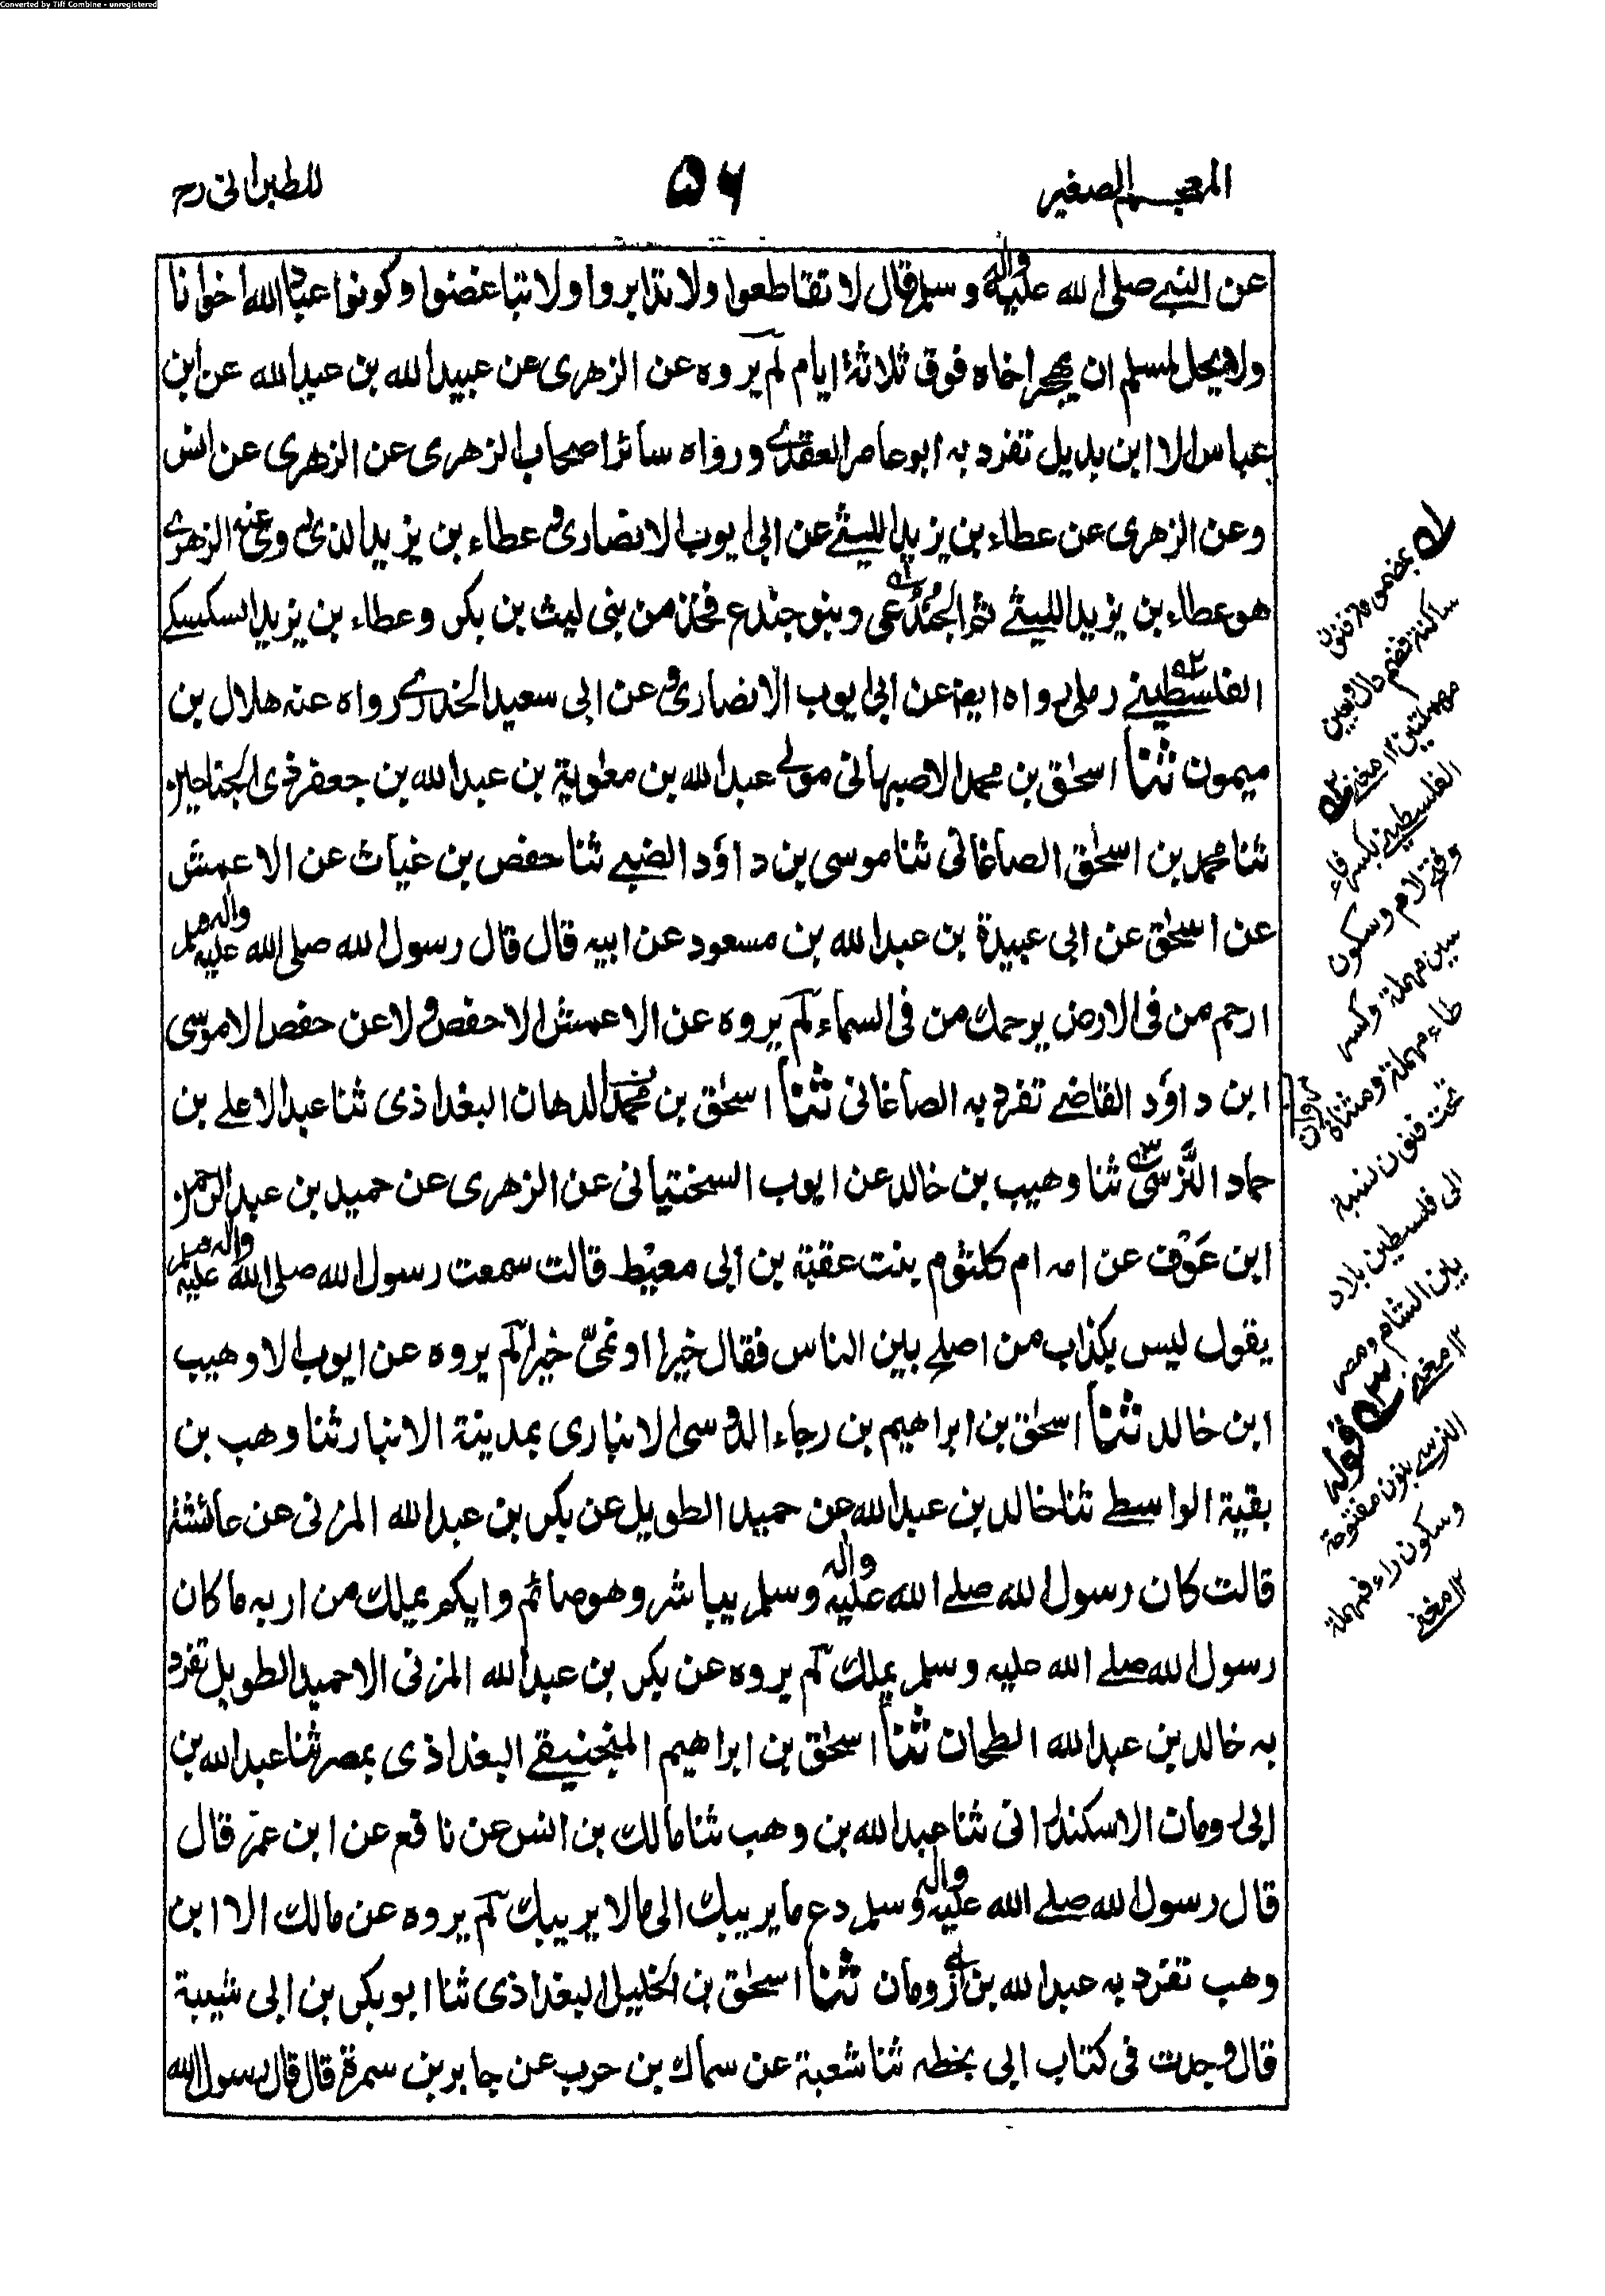 Converted by Tiff Combine - unregistered
المعجم الصغير
٥٦
للطبرانی رح
عن النبي صلى الله عليه واله وسلم قال لا تقاطعوا ولا تدابروا ولا تباغضوا وكونوا عباد الله اخوانا
ولا يحل لمسلم ان يهجر اخاه فوق ثلاثة ايام لم يروه عن الزهرى عن عبيد الله بن عبد الله عن ابن
عباس الا ابن بديل تفرد به ابو عامر العقدي ورواه سائر اصحاب الزهرى عن الزهرى عن انس
وعن الزهرى عن عطاء بن يزيد الليثي عن ابى ايوب الانصارى و عطاء بن يزيد الذى روى عنه الزهرى
هو عطاء بن يزيد الليثي ثم الجُنْدُعي وبنو جندع فخذ من بنى ليث بن بكر وعطاء بن يزيد السكسكي
الفلسطيني رملى رواه ايضا عن ابى ايوب الانصارى و عن ابى سعيد الخدرى رواه عنه هلال بن
ميمون ثنا اسحٰق بن محمد الاصبهانى مولى عبد الله بن معٰوية بن عبد الله بن جعفر ذى الجناحين
ثنا محمد بن اسحٰق الصاغانى ثنا موسى بن داؤد الضبي ثنا حفص بن غياث عن الاعمش
عن اسحٰق عن ابى عبيدة بن عبد الله بن مسعود عن ابيه قال قال رسول الله صلى الله عليه واله وسلم
ارحم من فى الارض يرحمك من فى السماء لم يروه عن الاعمش الا حفص و لا عن حفص الا موسى
ابن داؤد القاضي تفرد به الصاغانى ثنا اسحٰق بن محمد الدهان البغداذى ثنا عبد الاعلى بن
حماد النَّرْسى ثنا وهيب بن خالد عن ايوب السختيانى عن الزهرى عن حميد بن عبد الرحمن
ابن عَوْف عن امه ام كلثوم بنت عقبة بن ابى معيْط قالت سمعت رسول الله صلى الله عليه واله وسلم
يقول ليس بكذاب من اصلح بين الناس فقال خيرا او نمىّ خيرا لم يروه عن ايوب الا وهيب
ابن خالد ثنا اسحٰق بن ابراهيم بن رجاء الدوسى الانبارى بمدينة الانبار ثنا وهب بن
بقية الواسطي ثنا خالد بن عبد الله عن حميد الطويل عن بكر بن عبد الله المزنى عن عائشة
قالت كان رسول الله صلى الله عليه واله وسلم يباشر وهو صائم وايكم يملك من اربه ما كان
رسول الله صلى الله عليه وسلم يملك لم يروه عن بكر بن عبد الله المزنى الا حميد الطويل تفرد
به خالد بن عبد الله الطحان ثنا اسحٰق بن ابراهيم المنجنيقي البغداذى بمصر ثنا عبد الله بن
ابى رومان الاسكندرانى ثنا عبد الله بن وهب ثنا مالك بن انس عن نافع عن ابن عمر قال
قال رسول الله صلى الله عليه واله وسلم دع ما يريبك الى ما لا يريبك لم يروه عن مالك الا ابن
وهب تفرد به عبد الله بن ابى رومان ثنا اسحٰق بن الخليل البغداذى ثنا ابو بكر بن ابى شيبة
قال وجدت فى كتاب ابى بخطه ثنا شعبة عن سماك بن حرب عن جابر بن سمرة قال قال رسول الله
ساكنة فضم دال وعين
مهملتين ١٢ مغني
الفلسطيني بكسر فاء
وفتح لام وسكون
سين مهملة وكسر
طاء مهملة ومثناة
تحت فنون نسبة
الى فلسطين بلاد
بين الشام ومصر
١٢ مغني
قوله
النرسي بنون مفتوحة
وسكون راء فمهملة
١٢ مغني